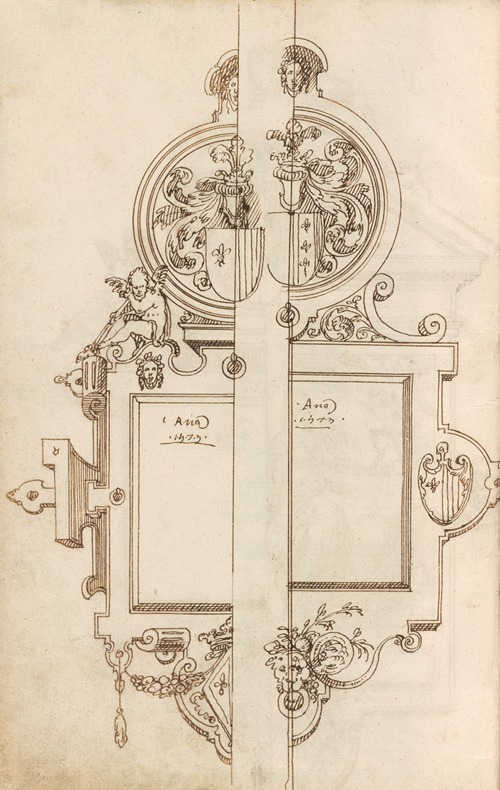 Ano
.1573.
Ano
.1573.